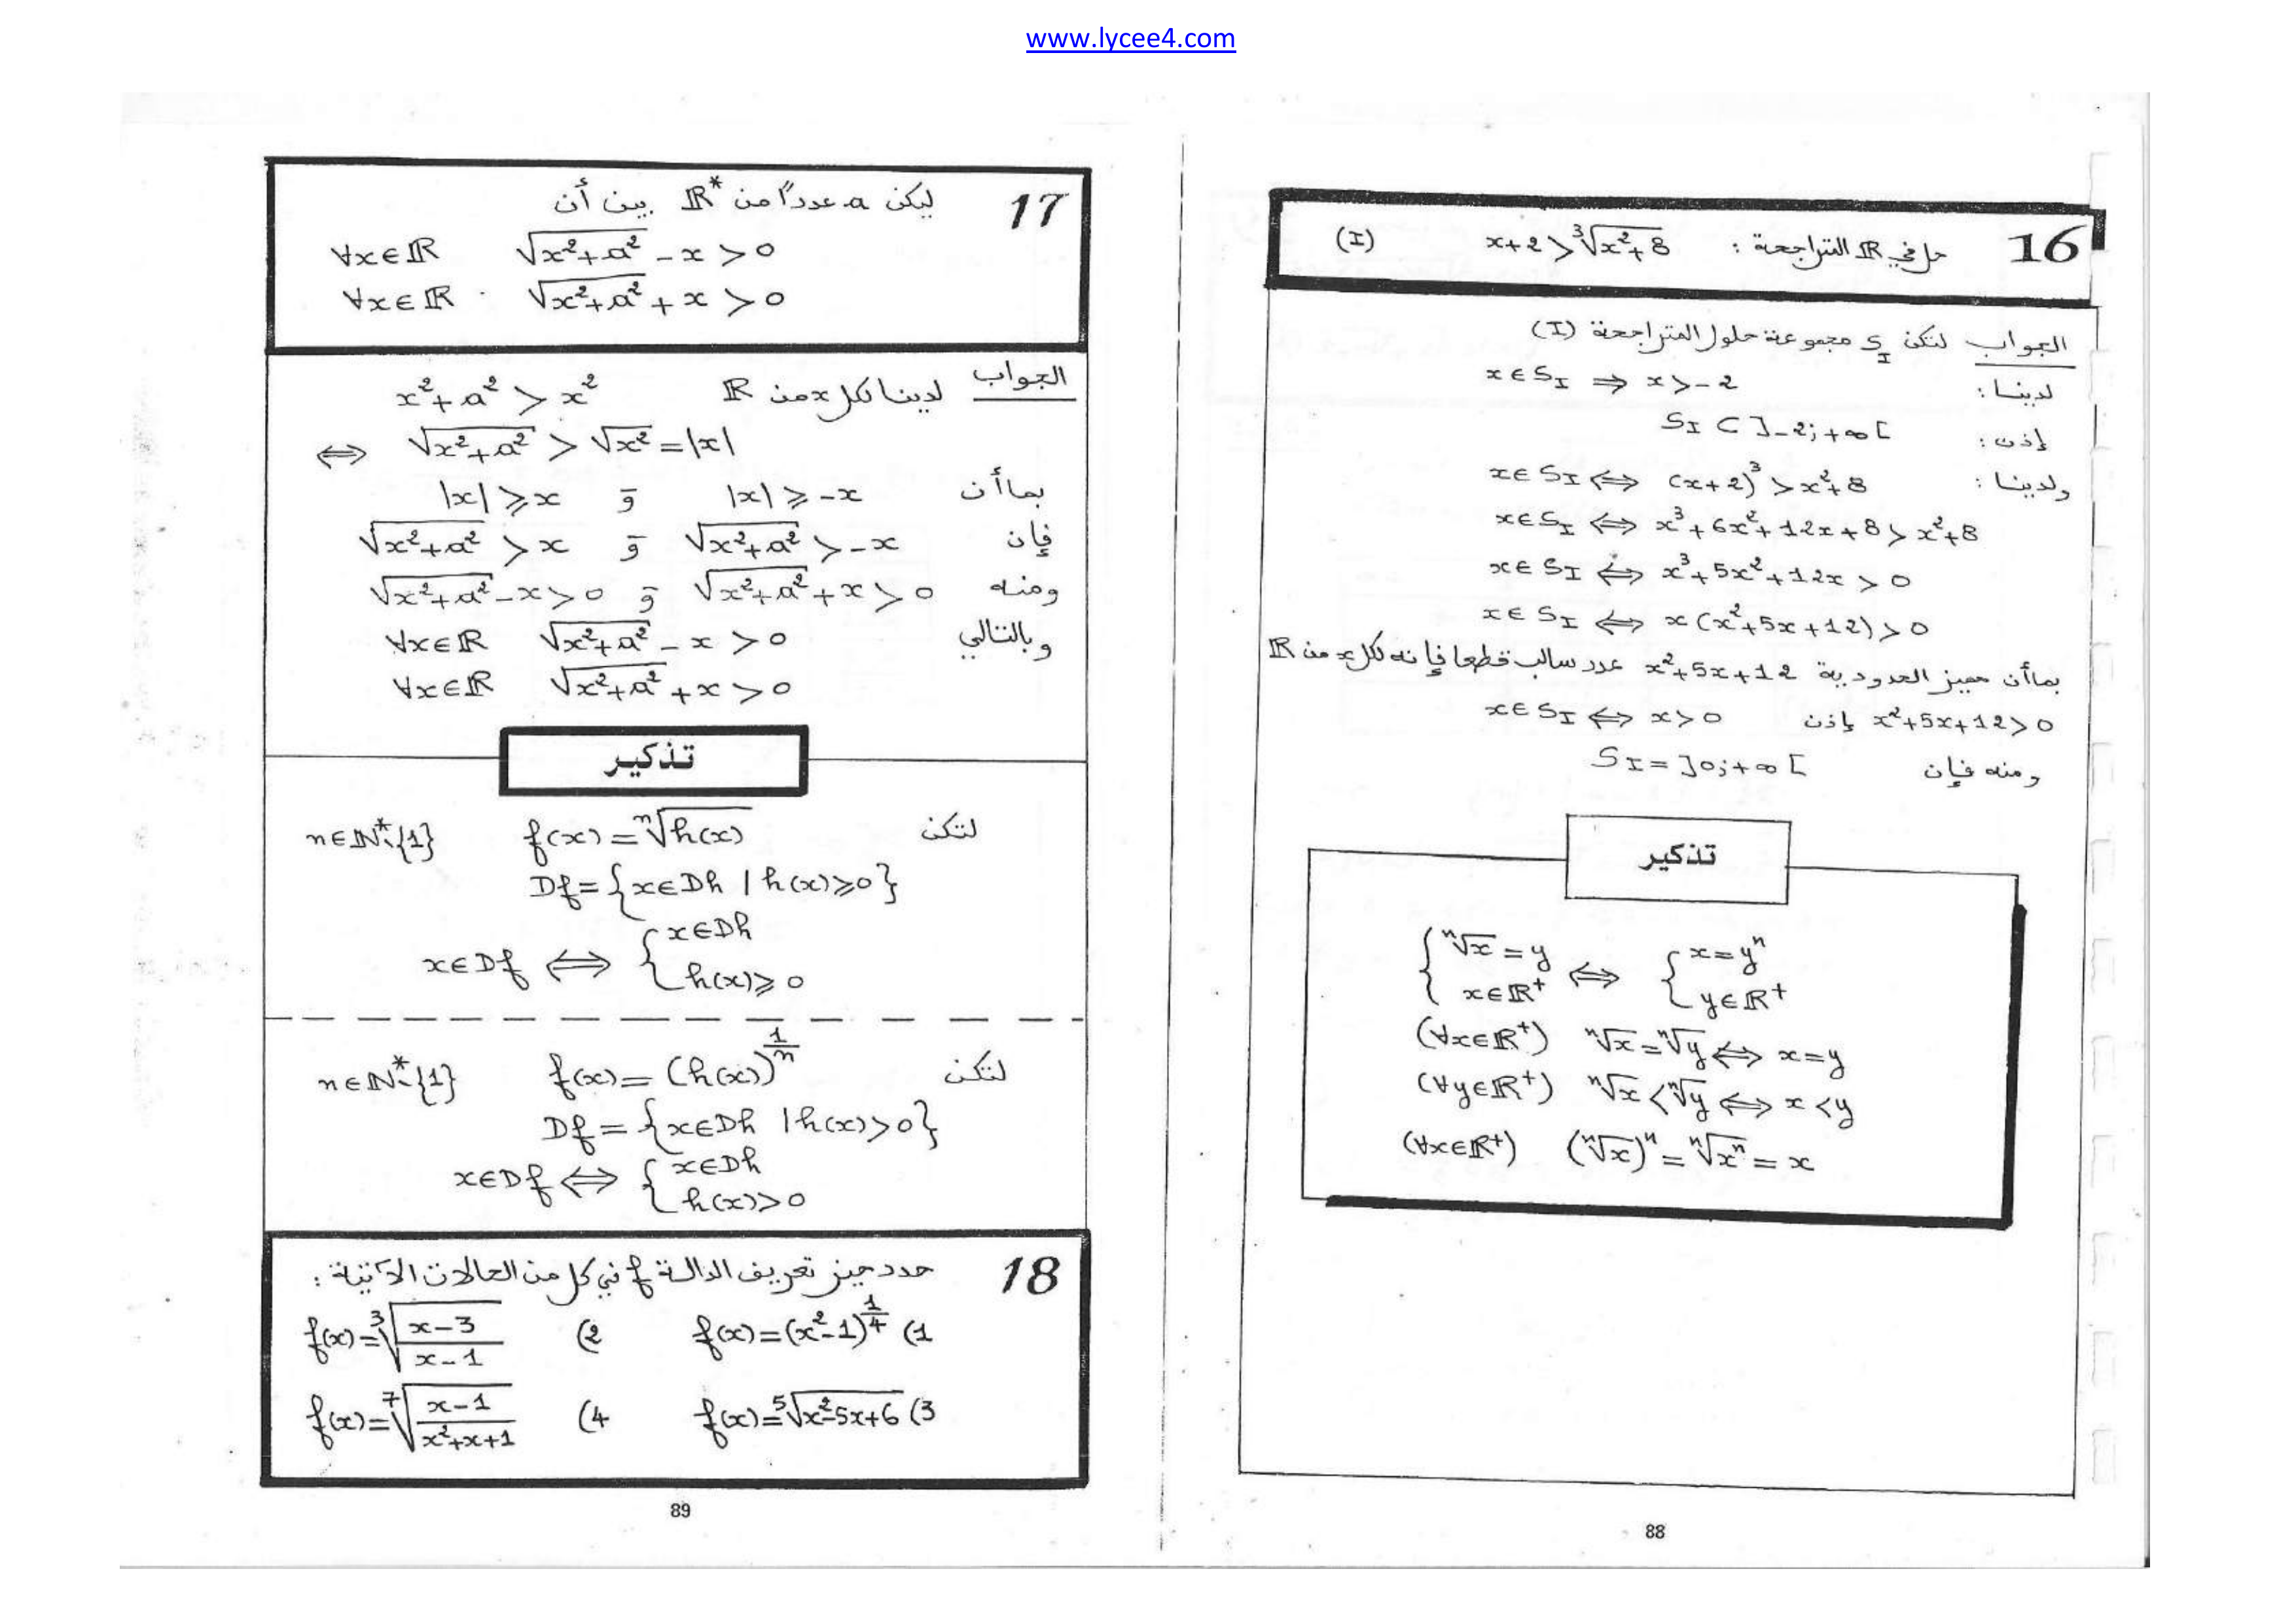 www.lycee4.com
16 حل في ℝ المتراجحة : x+2 > ∛(x²+8) (I)
الجواب لتكن S_I مجموعة حلول المتراجحة (I)
لدينا : x ∈ S_I ⇒ x > -2
إذن : S_I ⊂ ]-2 ; +∞[
ولدينا : x ∈ S_I ⇔ (x+2)³ > x²+8
x ∈ S_I ⇔ x³+6x²+12x+8 > x²+8
x ∈ S_I ⇔ x³+5x²+12x > 0
x ∈ S_I ⇔ x(x²+5x+12) > 0
بما أن مميز الحدودية x²+5x+12 عدد سالب قطعا فإنه لكل x من ℝ
x²+5x+12 > 0 إذن x ∈ S_I ⇔ x > 0
ومنه فإن S_I = ]0 ; +∞[
تذكير
{ ⁿ√x = y , x ∈ ℝ⁺ ⇔ { x = yⁿ , y ∈ ℝ⁺
(∀x∈ℝ⁺) ⁿ√x = ⁿ√y ⇔ x = y
(∀y∈ℝ⁺) ⁿ√x < ⁿ√y ⇔ x < y
(∀x∈ℝ⁺) (ⁿ√x)ⁿ = ⁿ√xⁿ = x
88
17 ليكن a عدداً من ℝ* بين أن
∀x∈ℝ √(x²+a²) - x > 0
∀x∈ℝ √(x²+a²) + x > 0
الجواب لدينا لكل x من ℝ x²+a² > x²
⇔ √(x²+a²) > √x² = |x|
بما أن |x| ⩾ -x و |x| ⩾ x
فإن √(x²+a²) > -x و √(x²+a²) > x
ومنه √(x²+a²) + x > 0 و √(x²+a²) - x > 0
وبالتالي ∀x∈ℝ √(x²+a²) - x > 0
∀x∈ℝ √(x²+a²) + x > 0
تذكير
لتكن f(x) = ⁿ√h(x) n∈ℕ*∖{1}
Df = {x∈Dh | h(x) ⩾ 0}
x∈Df ⇔ { x∈Dh , h(x) ⩾ 0
لتكن f(x) = (h(x))^(1/n) n∈ℕ*∖{1}
Df = {x∈Dh | h(x) > 0}
x∈Df ⇔ { x∈Dh , h(x) > 0
18 حدد حيز تعريف الدالة f في كل من الحالات الآتية :
1) f(x) = (x²-1)^(1/4) 2) f(x) = ∛((x-3)/(x-1))
3) f(x) = ⁵√(x²-5x+6) 4) f(x) = ⁷√((x-1)/(x²+x+1))
89